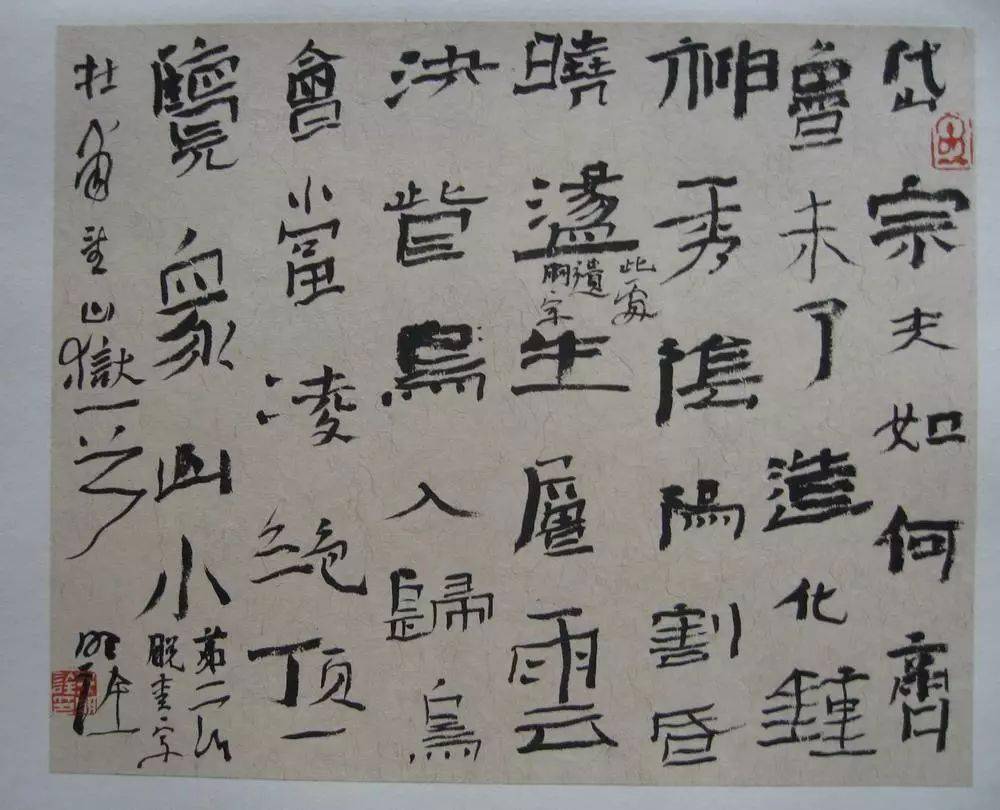 岱宗夫如何齊
魯未了造化鍾
神秀陰陽割昏
曉盪生層雲
此處
遺
胸字
決眥鳥入歸鳥
會當凌絕頂一
覽眾山小
第二行
脱青字
杜甫望山嶽一
明詮